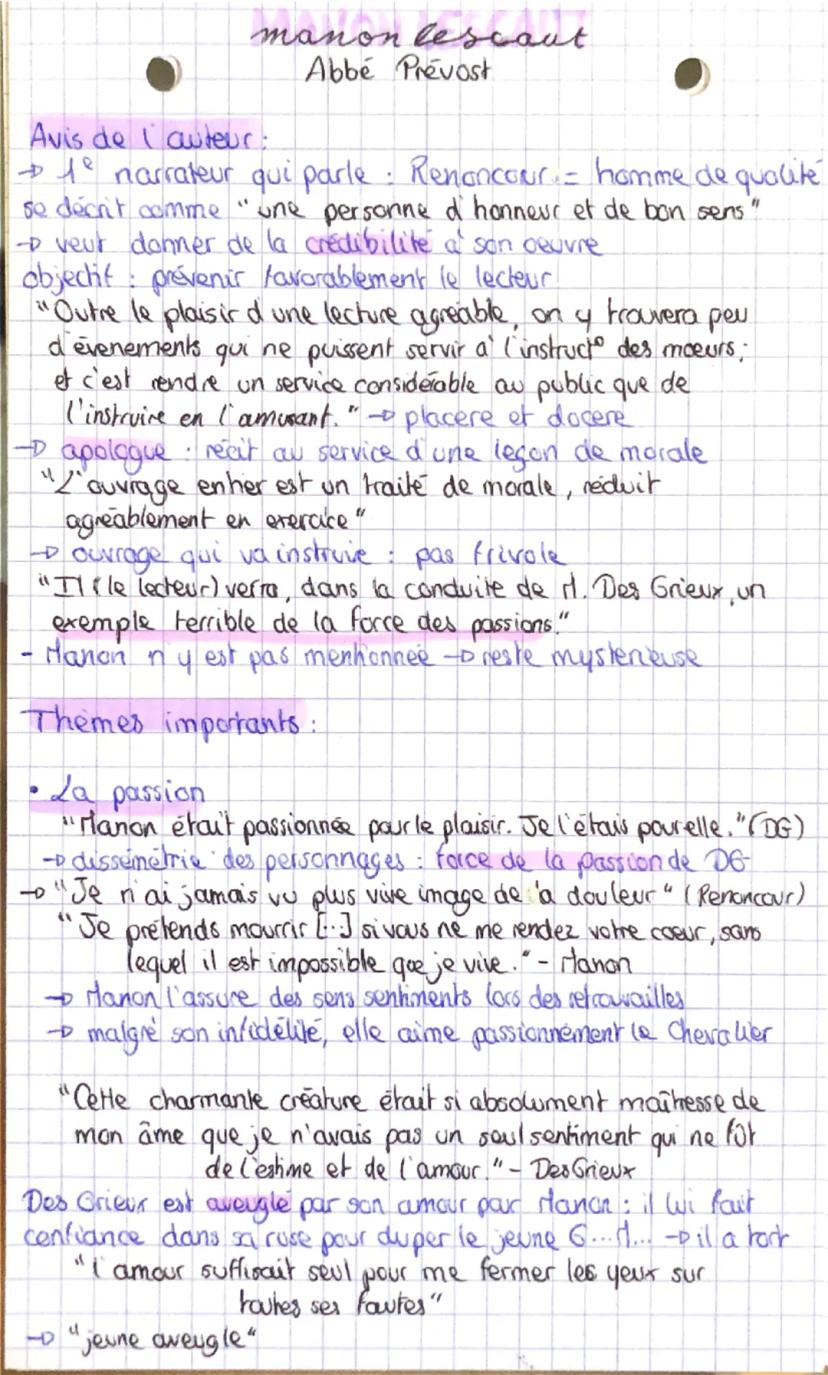 manon lescaut
Abbé Prévost
Avis de l'auteur :
→ 1e narrateur qui parle : Renoncour = homme de qualité
se décrit comme "une personne d'honneur et de bon sens"
→ veut donner de la crédibilité à son oeuvre
objectif : prévenir favorablement le lecteur
"Outre le plaisir d'une lecture agréable, on y trouvera peu
d'évenements qui ne puissent servir à l'instruct° des mœurs ;
et c'est rendre un service considérable au public que de
l'instruire en l'amusant." → placere et docere
→ apologue : récit au service d'une leçon de morale
"L'ouvrage entier est un traité de morale, réduit
agréablement en exercice"
→ ouvrage qui va instruire : pas frivole
"Il (le lecteur) verra, dans la conduite de M. Des Grieux, un
exemple terrible de la force des passions."
- Manon n'y est pas mentionnée → reste mystérieuse
Thèmes importants :
• La passion
"Manon était passionnée pour le plaisir. Je l'étais pour elle." (DG)
→ dissémétrie des personnages : force de la passion de DG
→ "Je n'ai jamais vu plus vive image de la douleur" (Renoncour)
"Je prétends mourrir [...] si vous ne me rendez votre coeur, sans
lequel il est impossible que je vive." - Manon
→ Manon l'assure des sens sentiments lors des retrouvailles
→ malgré son infidélité, elle aime passionnément le Chevalier
"Cette charmante créature était si absolument maîtresse de
mon âme que je n'avais pas un seul sentiment qui ne fût
de l'estime et de l'amour." - Des Grieux
Des Grieux est aveuglé par son amour pour Manon : il lui fait
confiance dans sa ruse pour duper le jeune G...M... → il a tort
"l'amour suffisait seul pour me fermer les yeux sur
toutes ses fautes"
→ "jeune aveugle"